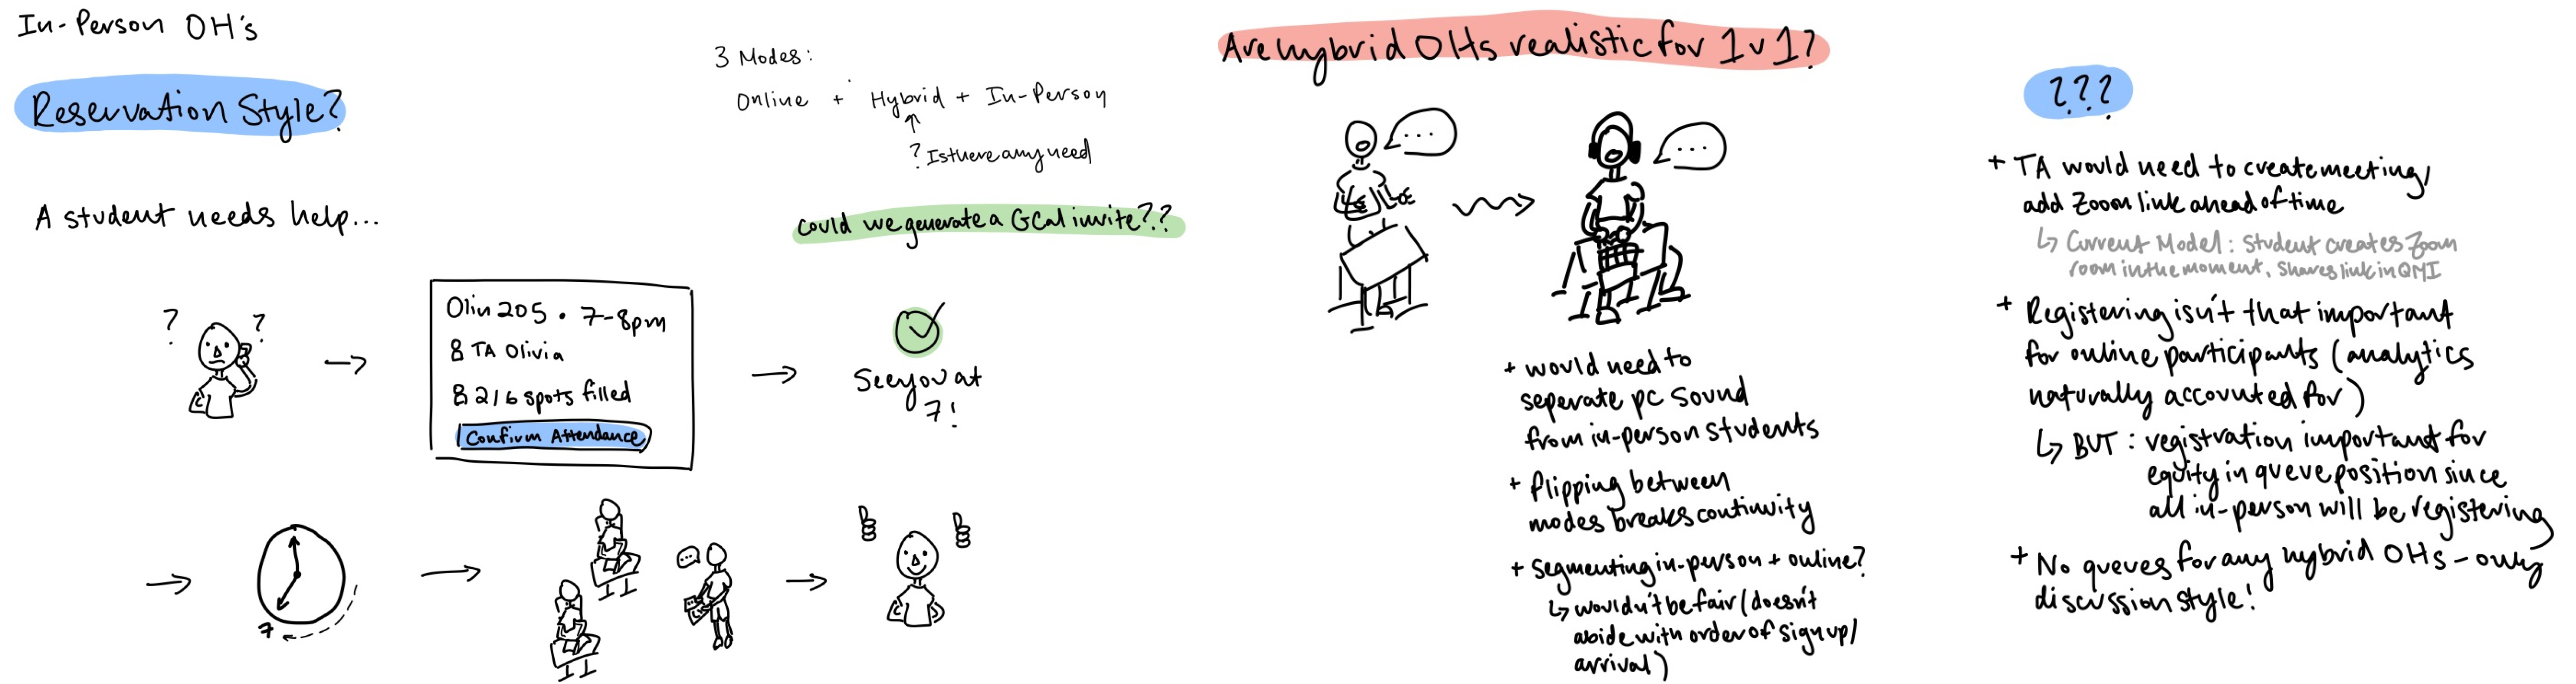 In-Person OH's
Reservation Style?
A student needs help...
? ?
Olin 205 • 7-8pm
TA Olivia
2/6 spots filled
Confirm Attendance
See you at
7!
7
...
3 Modes:
Online + Hybrid + In-Person
? Is there any need
could we generate a GCal invite??
Are hybrid OHs realistic for 1v1?
...
...
+ would need to
seperate pc sound
from in-person students
+ Flipping between
modes breaks continuity
+ Segmenting in-person + online?
↳ wouldn't be fair (doesn't
abide with order of sign up/
arrival)
???
+ TA would need to create meeting/
add Zoom link ahead of time
↳ Current Model: Student creates Zoom
room in the moment, shares link in QMI
+ Registering isn't that important
for online participants (analytics
naturally accounted for)
↳ BUT: registration important for
equity in queue position since
all in-person will be registering
+ No queues for any hybrid OHs - only
discussion style!